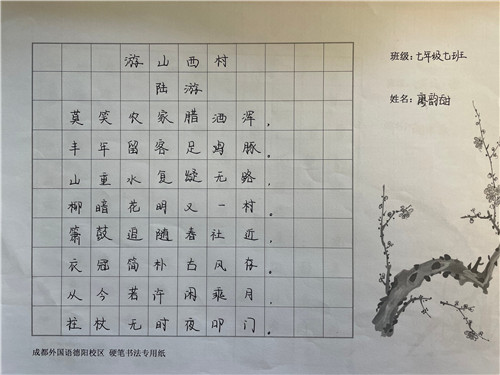 游山西村
陆游
莫笑农家腊酒浑，
丰年留客足鸡豚。
山重水复疑无路，
柳暗花明又一村。
箫鼓追随春社近，
衣冠简朴古风存。
从今若许闲乘月，
拄杖无时夜叩门。
班级：七年级七班
姓名：廖韵甜
成都外国语德阳校区 硬笔书法专用纸